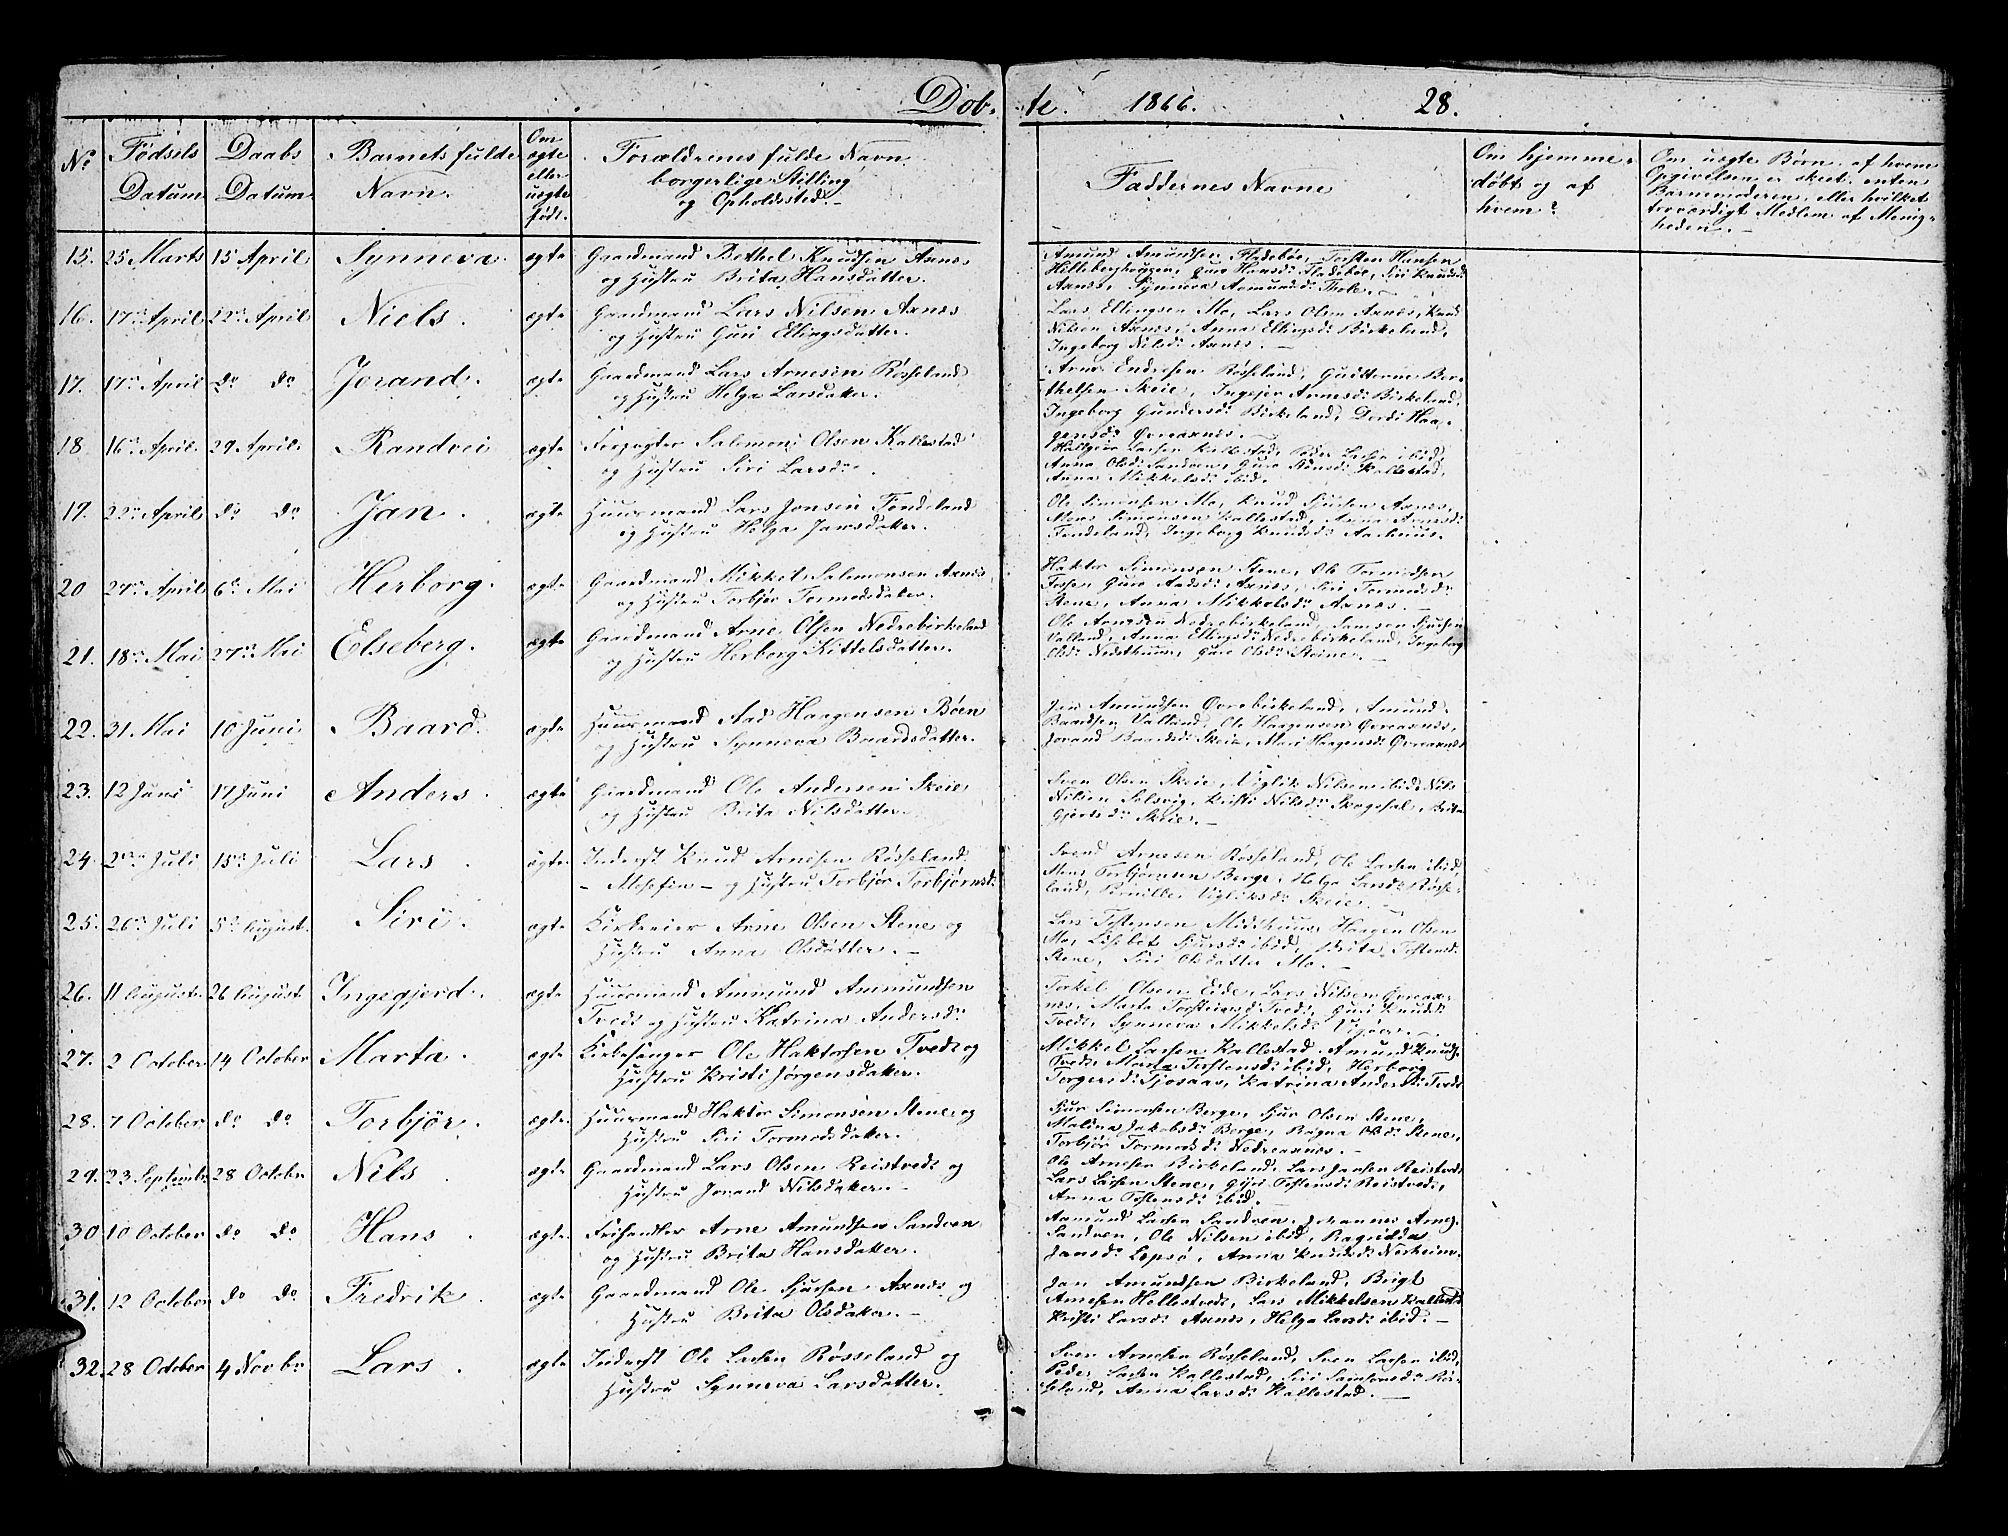 Døb-
te. 1866. 28.
No Fødsels Datum Daabs Datum. Barnets fulde Navn. Om ægte eller uægte født. Forældrenes fulde Navn, borgerlige Stilling og Opholdssted.
Faddernes Navne
Om hjemme-døbt og af hvem?
Om uægte Børn, af hvem Opgivelsen er skeet, enten Barnemoderen, eller hvilket troværdigt Medlem af Menigheden.
15. 25 Marts 15 April Synneva. ægte Gaardmand Bethel Knudsen Axnes
og Hustru Brita Hansdatter.
Amund Amundsen Fladebøe, Torsten Hansen
Hilleberghaugen, Guro Hansd: Fladebøe, Siri Knudsd:
Axnes, Synneva Asmundsd: Thole.
16. 17de April 22de April Niels. ægte Gaardmand Lars Nilsen Axnes
og Hustru Guri Ellingsdatter.
Lars Ellingsen Mo, Lars Olsen Axnes, Knud
Nilsen Axnes, Anna Ellingsd: Birkeland,
Ingeborg Nilsd: Axnes.
17. 17de April do do Jorand. ægte Gaardmand Lars Arnesen Røsseland
og Hustru Helga Larsdatter.
Arne Endresen Røsseland, Gudtorm Ber-
thelsen Skeie, Ingejer Arnesd: Birkeland,
Ingeborg Gundersd: Birkeland, Dordi Haa-
gensd: Øvreaxnes.
18. 16de April 29 April. Randvei ægte Salemon Olsen Kallestad
og Hustru Siri Larsd.
Hallgeir Larsen Kallestad, Peder Larsen ibid,
Anna Olsd: Sandven, Kallestad,
Anna Mikkelsd: ibid.
19. 22de April do do Jan. ægte Huusmand Lars Jonsen Tøndeland
og Hustru Helga Jansdatter.
Ole Simonsen Mo, Knud Sjursen Axnes,
Mons Simonsen Kallestad, Anna Arnesd:
Tøndeland, Ingeborg Knudsd: Aarhuus.
20 27de April 6te Mai Herborg. ægte Gaardmand Mikkel Salemonsen Axnes
og Hustru Torbjør Tormodsdatter.
Haktor Simonsen Stene, Ole Tormodsen
Fossen, Axnes, Siri Tormodsd:
Stene, Anna Mikkelsd: Axnes.
21. 18de Mai 27de Mai Elseberg. ægte Gaardmand Arne Olsen Nedrebirkeland
og Hustru Herborg Kittelsdatter.
Ole Arnesen Nedrebirkeland, Samson Sjursen
Valland, Anna Ellingsd: Nedrebirkeland, Ingeborg
Olsd: Nedsthuus, Guro Olsd: Steine.
22. 31 Mai 10 Juni Baard. ægte Huusmand Aad Haagensen Bøen
og Hustru Synneva Baardsdatter.
Jan Amundsen Øvrebirkeland, Amund
Baardsen Valland, Ole Haagensen Øvreaxnes,
Jorand Baardsd: Skeie, Mari Haagensd: Øvreaxnes
23. 12 Juni 17 Juni Anders. ægte Gaardmand Ole Andersen Skeie,
og Hustru Brita Nilsdatter.
Sven Olsen Skeie, Viglik Nilsen ibid, Nils
Nilsen Solsvig, Kristi Nilsd: Skogesal, Brita
Gjertsd: Skeie.
24. 2den Juli 15de Juli Lars. ægte Inderst Knud Arnesen Røsseland
- Mosefin - og Hustru Torbjør Torbjørnsd:
Svend Arnesen Røsseland, Ole Larsen ibid,
Mons Torbjørnsen Berge, Helga Larsd: Røsse-
land, Pernille Vigliksd: Skeie.
25. 26de Juli 5te August. Siri. ægte Kirkeeier Arne Olsen Stene og
Hustru Anna Olsdatter.
Lars Tostensen Midthuus, Haagen Olsen
Mo, Lisebet Sjursd: ibid, Brita Tostensd:
Stene, Siri Olsdatter Mo.
26. 11 August. 26 August. Ingegjerd. ægte Huusmand Ammund Ammundsen
Tvedt og Hustru Katrina Andersd:
Torkel Olsen Eide, Lars Nilsen Øvreax-
nes, Marta Torsteinsd: Tvedt, Guri Knudsd:
Tvedt, Synneva Mikkelsd: Vigøer.
27. 2 October 14 October Marta. ægte Kirkesanger Ole Haktorsen Tvedt og
Hustru Kristi Jørgensdatter.
Mikkel Larsen Kallestad, Amund Knuds.
Tvedt, Marta Torstensd: ibid, Herborg
Torgersd: Tjosaas, Katrina Andersd: Tvedt
28. 7 October do do Torbjør. ægte. Huusmand Haktor Simonsen Stene og
Hustru Siri Tormodsdatter.
Sjur Simonsen Berge, Sjur Olsen Stene,
Malina Jakobsd: Berge, Ragna Olsd: Stene,
Torbjør Tormodsd: Nedreaxnes.
29. 23 Septembr 28 October Nils ægte Gaardmand Lars Olsen Reistvedt og
Hustru Jorand Nilsdatter.
Ole Arnesen Birkeland, Lars Jansen Reistvedt,
Lars Larsen Stene, Gjør Tostensd: Reistvedt,
Anna Tostensd: ibid.
30 10 October do do Hans. ægte. Frihandler Arne Amundsen Sandven
og Hustru Brita Hansdatter.
Aamund Larsen Sandven, Johannes Arnes.
Sandven, Ole Nilsen ibid, Ragnidda
Jansd: Lepsø, Anna Knudsd: Norheim.
31. 12 October do do Fredrik. ægte Gaardmand Ole Sjursen Axnes og
Hustru Brita Olsdatter.
Jan Amundsen Birkeland, Brigt
Arnesen Hellestvedt, Lars Mikkelsen Kallestd
Kristi Larsd: Axnes, Helga Larsd: ibid.
32. 28 October 4 Novbr Lars. ægte Inderst Ole Larsen Røsseland og
Hustru Synneva Larsdatter.
Sven Arnesen Røsseland, Sven Larsen ibid,
Peder Larsen Kallestad, Siri Samsonsd: Røs-
seland, Anna Larsd: Kallestad.